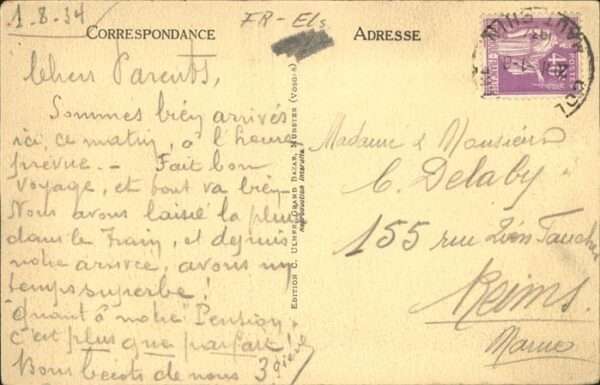 1-8-34
FR-Els
CORRESPONDANCE
ADRESSE
Chers Parents,
Sommes bien arrivés
ici, ce matin, à l'heure
prévue. - Fait bon
voyage, et tout va bien
Nous avons laissé la pluie
dans le train, et depuis
notre arrivée, avons un
temps superbe!
Quant à notre "Pension,
c'est plus que parfait!
Bons becots de nous 3
EDITION C. GRAND BAZAR, MUNSTER (VOSGES)
Reproduction interdite
40
COL
Madame & Monsieur
C. Delaby
155 rue Léon Faucher
Reims.
Marne